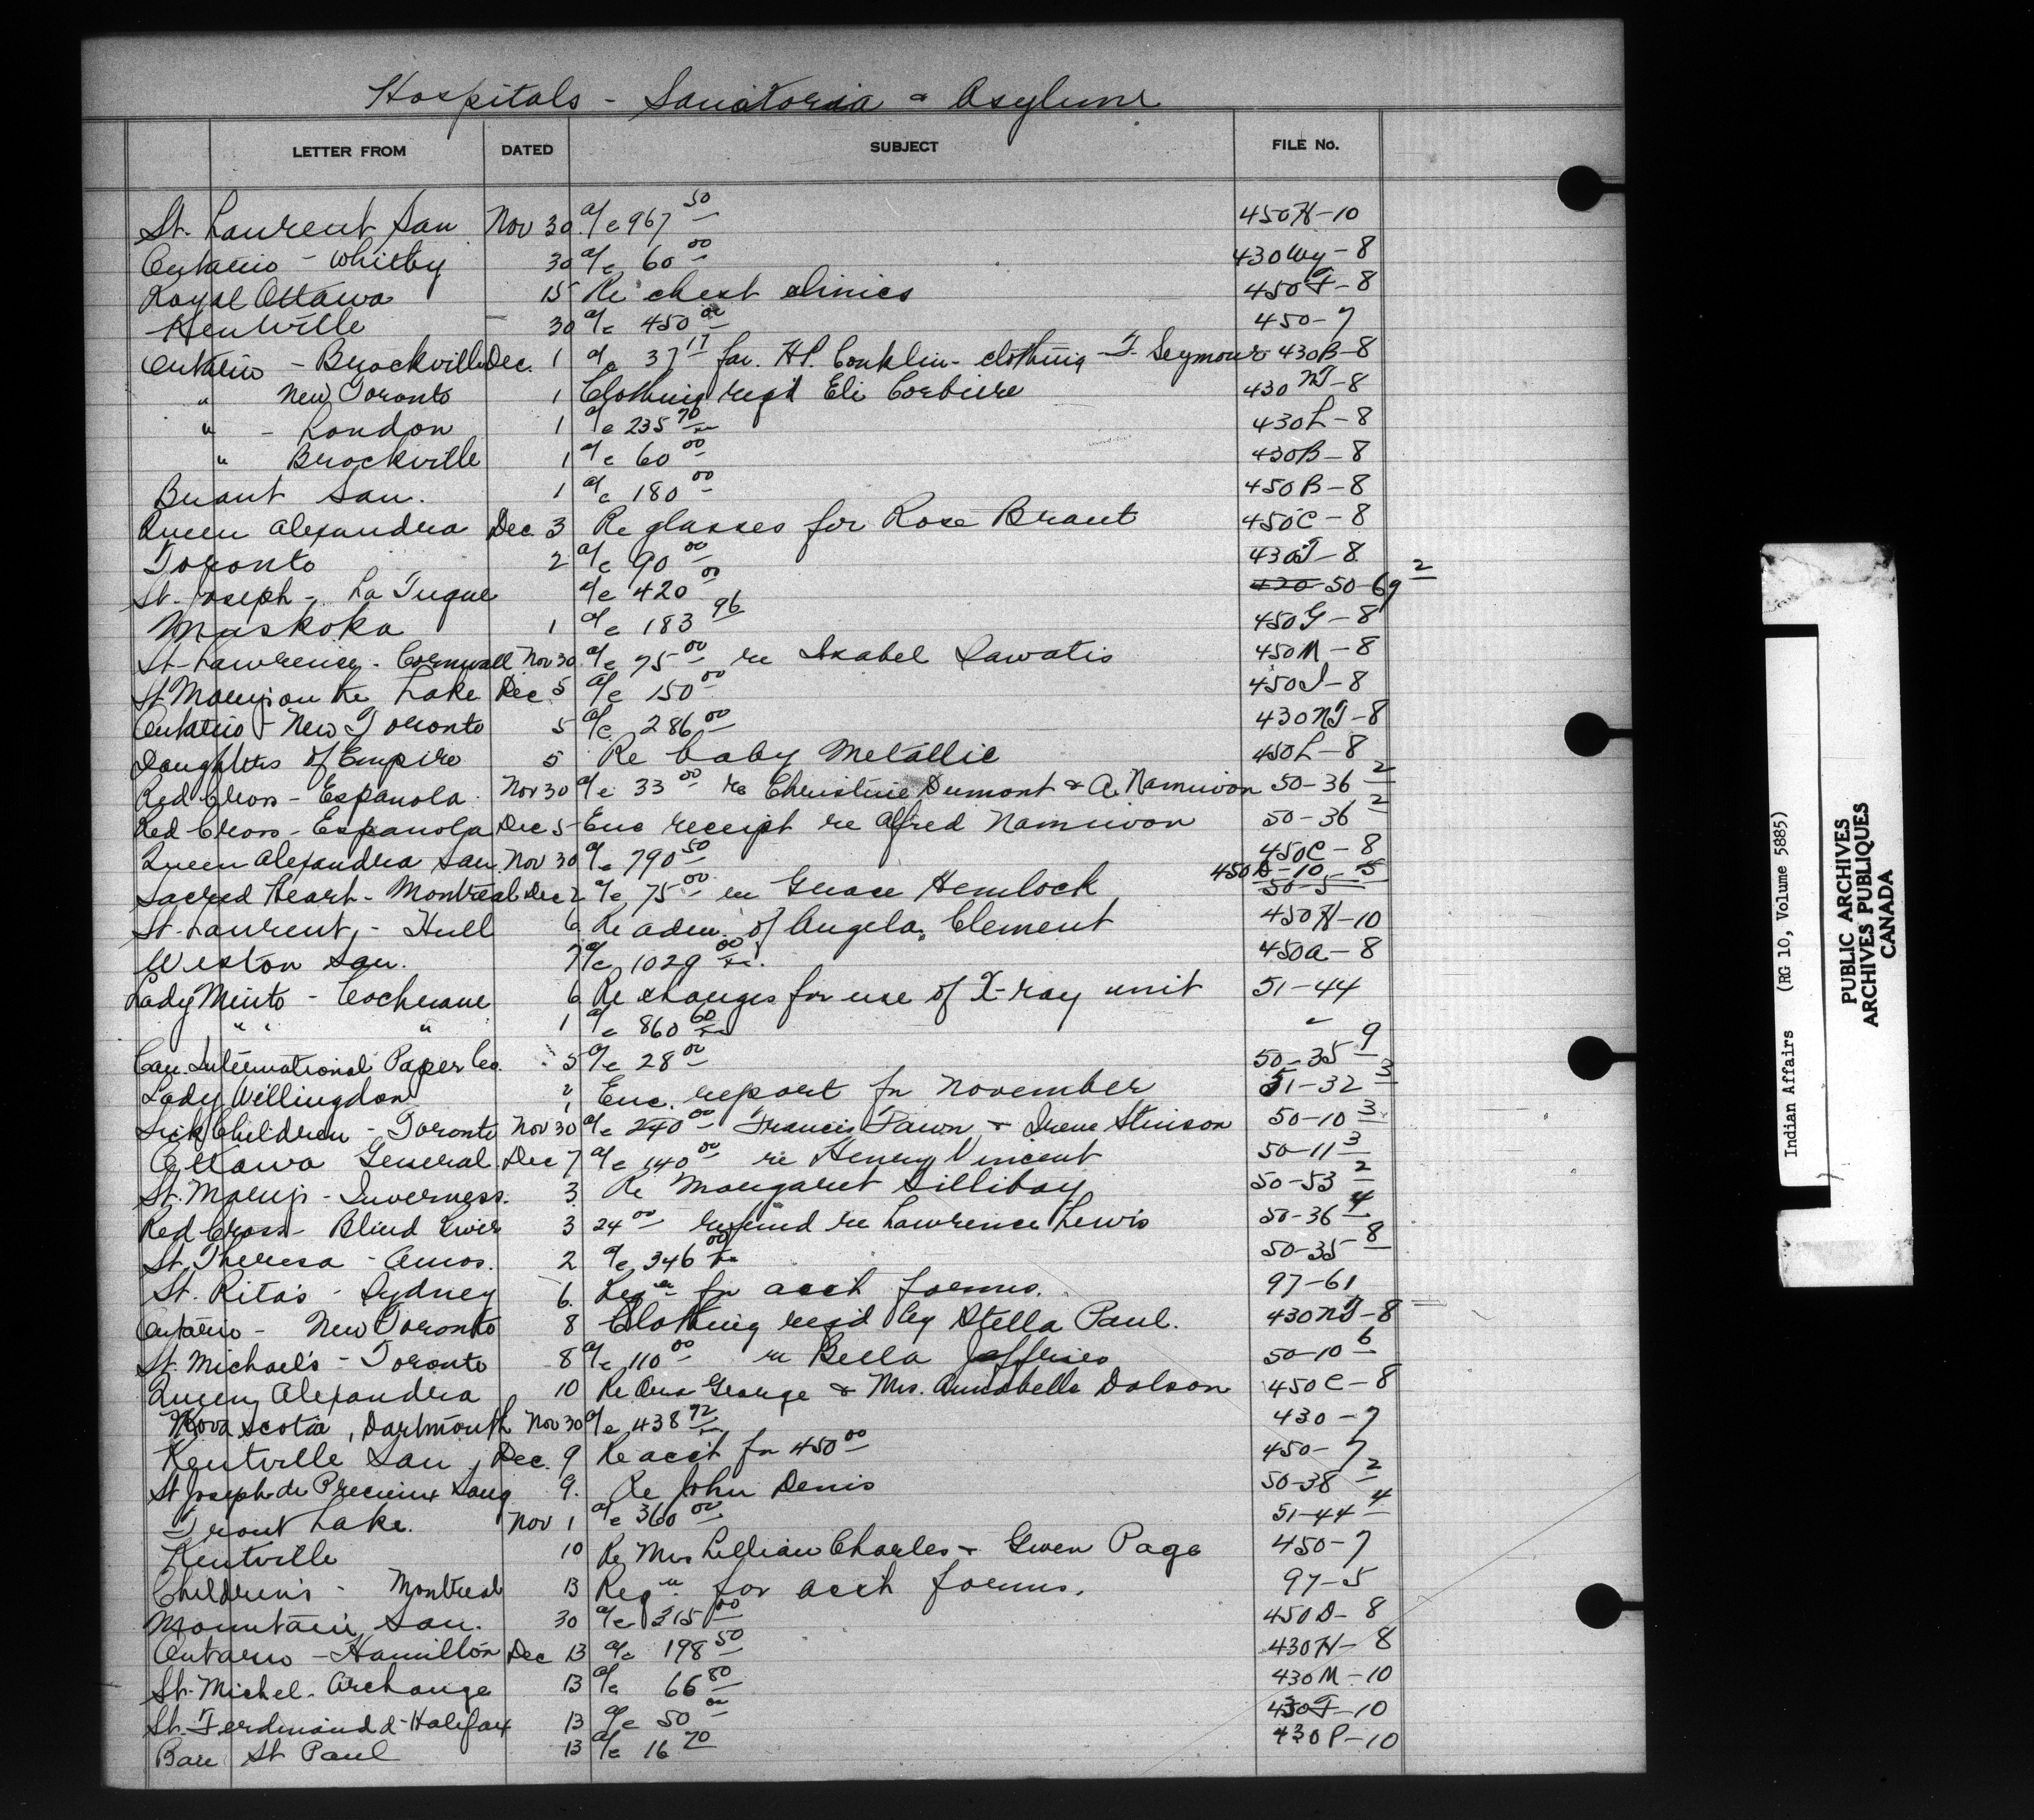 Hospitals - Sanatoria & Asylums
LETTER FROM DATED SUBJECT FILE No.
St. Laurent San Nov 30 a/c 967 50 450H-10
Ontario - Whitby 30 a/c 60 00 430Wy-8
Royal Ottawa 15 Re chest clinics 450F-8
Kentville 30 a/c 450 00 450-7
Ontario - Brockville Dec. 1 a/c 37 17 for H.P. Conklin - clothing - F. Seymour 430B-8
" New Toronto 1 Clothing reqd Eli Corbiere 430NT-8
" - London 1 a/c 235 70 430L-8
" Brockville 1 a/c 60 00 430B-8
Brant San. 1 a/c 180 00 450B-8
Queen Alexandra Dec. 3 Re glasses for Rose Brant 450C-8
Toronto 2 a/c 90 00 430T-8
St. Joseph - La Tuque a/c 420 00 420 50-69 2
Muskoka 1 a/c 183 96 450G-8
St-Lawrence - Cornwall Nov 30 a/c 75 00 re Isabel Sawatis 450M-8
St. Mary's on the Lake Dec. 5 a/c 150 00 450I-8
Ontario - New Toronto 5 a/c 286 00 430NT-8
Daughters of Empire 5 Re baby Metallic 450L-8
Red Cross - Espanola Nov 30 a/c 33 00 re Christine Dumont & A. Namiwon 50-36 2
Red Cross - Espanola Dec 5 Enc receipt re Alfred Namiwon 50-36 2
Queen Alexandra San. Nov 30 a/c 790 50 450C-8
Sacred Heart - Montreal Dec 2 a/c 75 00 re Grace Hemlock 450D-10 50-5 5
St. Laurent, - Hull 6 Re adm. of Angela Clement 450H-10
Weston San. 7 a/c 1029 00 450A-8
Lady Minto - Cochrane 6 Re charges for use of X-ray unit 51-44
" " " 1 a/c 860 60 "
Can. International Paper Co. 5 a/c 28 00 50-35 9
Lady Willingdon 1 Enc. report for November 51-32 3
Sick Children - Toronto Nov 30 a/c 240 00 Francis Pawn & Irene Stinson 50-10 3
Ottawa General Dec 7 a/c 140 00 re Henry Vincent 50-11 3
St. Mary's - Inverness. 3 Re Margaret Sillibay 50-53 2
Red Cross - Blind River 3 24 00 refund re Lawrence Lewis 50-36 4
St. Theresa - Amos. 2 a/c 346 00 50-35 8
St. Rita's - Sydney 6. Reqn for acct forms. 97-61
Ontario - New Toronto 8 Clothing reqd by Stella Paul. 430NT-8
St. Michael's - Toronto 8 a/c 110 00 re Bella Jeffries 50-10 6
Queen Alexandra 10 Re Ora George & Mrs. Annabelle Dolson 450C-8
Nova Scotia, Dartmouth Nov 30 a/c 438 72 430-7
Kentville San, Dec. 9 Re acct for 450 00 450-7
St Joseph du Precieux Sang 9. Re John Denis 50-38 2
Trout Lake. Nov 1 a/c 360 00 51-44 4
Kentville 10 Re Mrs Lillian Charles & Gwen Page 450-7
Children's - Montreal 13 Reqn for acct forms. 97-5
Mountain San. 30 a/c 315 00 450D-8
Ontario - Hamilton Dec 13 a/c 198 50 430H-8
St. Michel - Archange 13 a/c 66 80 430M-10
St. Ferdinand d-Halifax 13 a/c 50 00 430F-10
Baie St Paul 13 a/c 16 70 430P-10
Indian Affairs (RG 10, Volume 5885)
PUBLIC ARCHIVES
ARCHIVES PUBLIQUES
CANADA